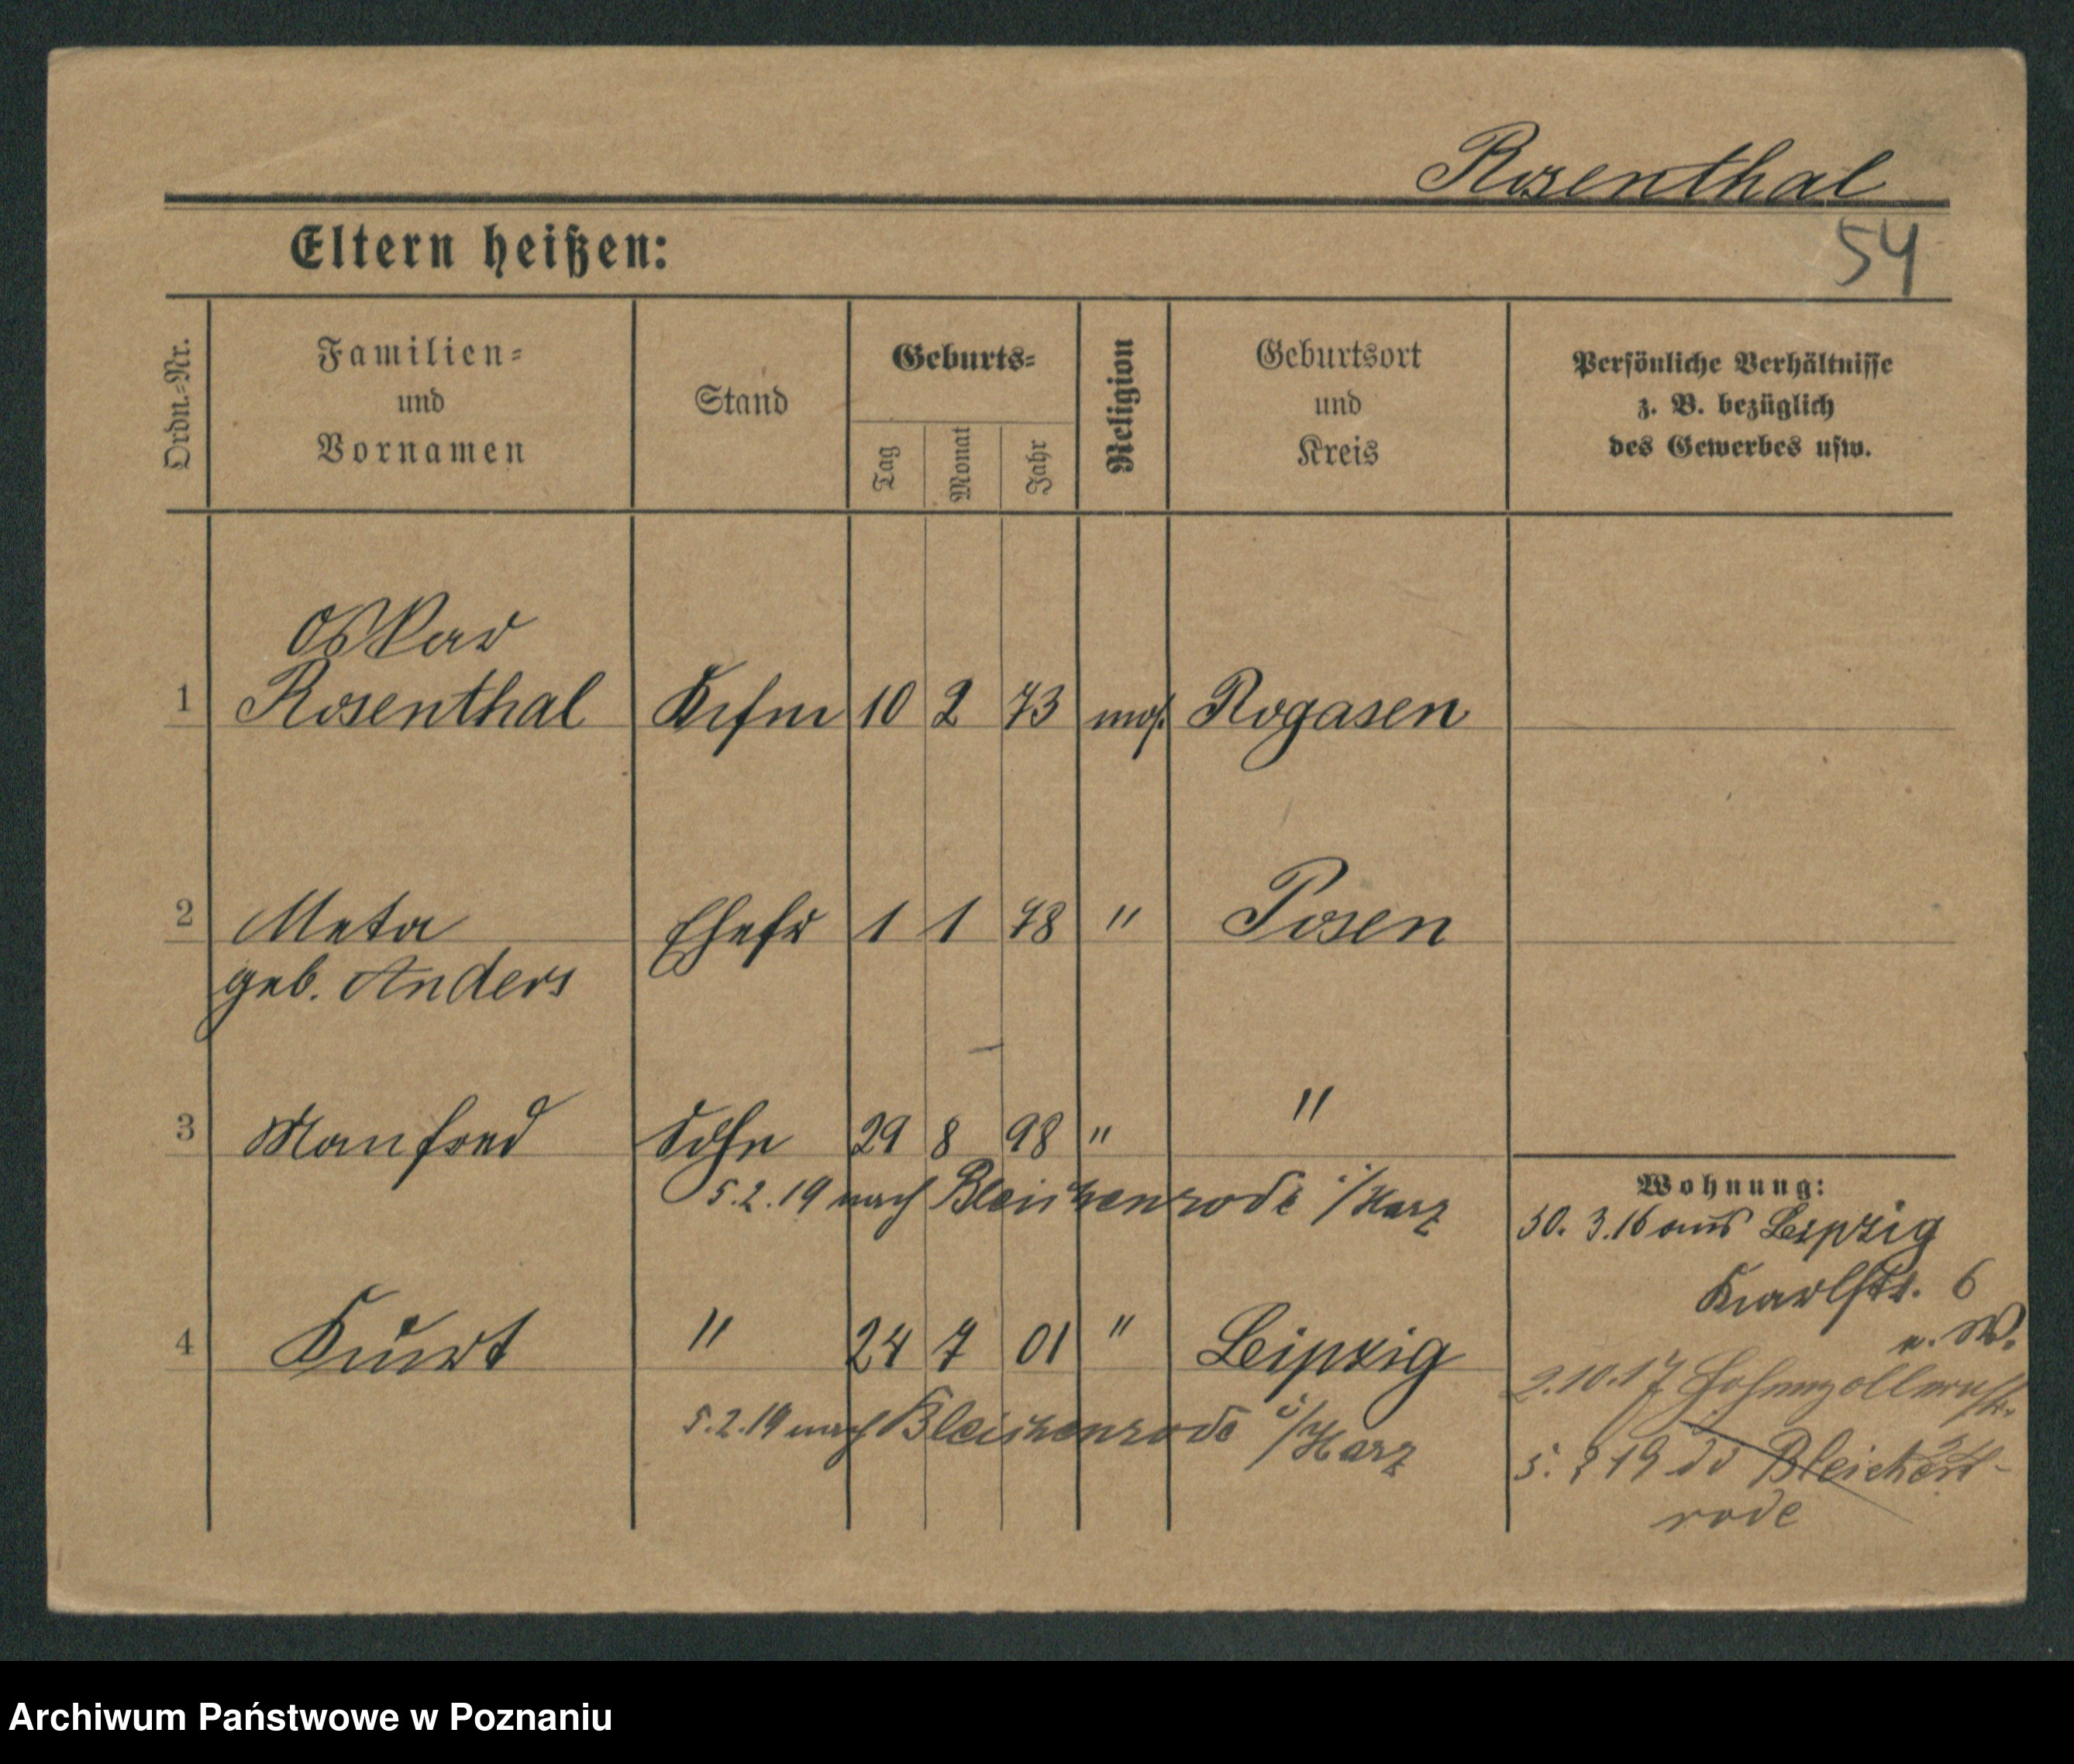 Rosenthal
54
Eltern heißen:
Ordn.-Nr.
Familien- und Vornamen
Stand
Geburts-
Tag
Monat
Jahr
Religion
Geburtsort und Kreis
Persönliche Verhältnisse
z. B. bezüglich
des Gewerbes usw.
Oskar
1 Rosenthal Kfm 10 2 73 mos. Rogasen
2 Meta Ehefr 1 1 78 " Posen
geb. Anders
3 Manfred Sohn 29 8 98 " "
5.2.19 nach Bleichenrode i/Harz
4 Kurt " 24 7 01 " Leipzig
5.2.19 nach Bleichenrode i/Harz
Wohnung:
30. 3.16 aus Leipzig
Karlstr. 6
n. W.
2.10.17 Hohenzollernstr.
5. 2 19 Bleichen-
rode
Archiwum Państwowe w Poznaniu